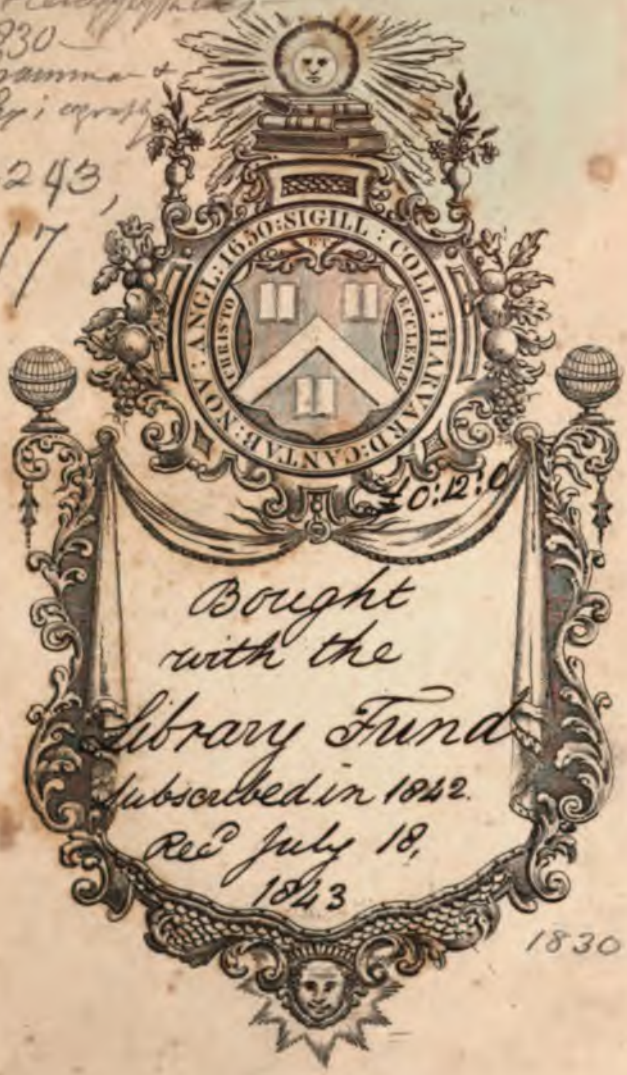 1830
243,
17
SIGILL : COLL : HARVARD : CANTAB : NOV : ANGL : 1650 :
CHRISTO ET ECCLESIÆ
£0:12:0
Bought
with the
Library Fund
subscribed in 1842.
Rec'd July 18,
1843
1830